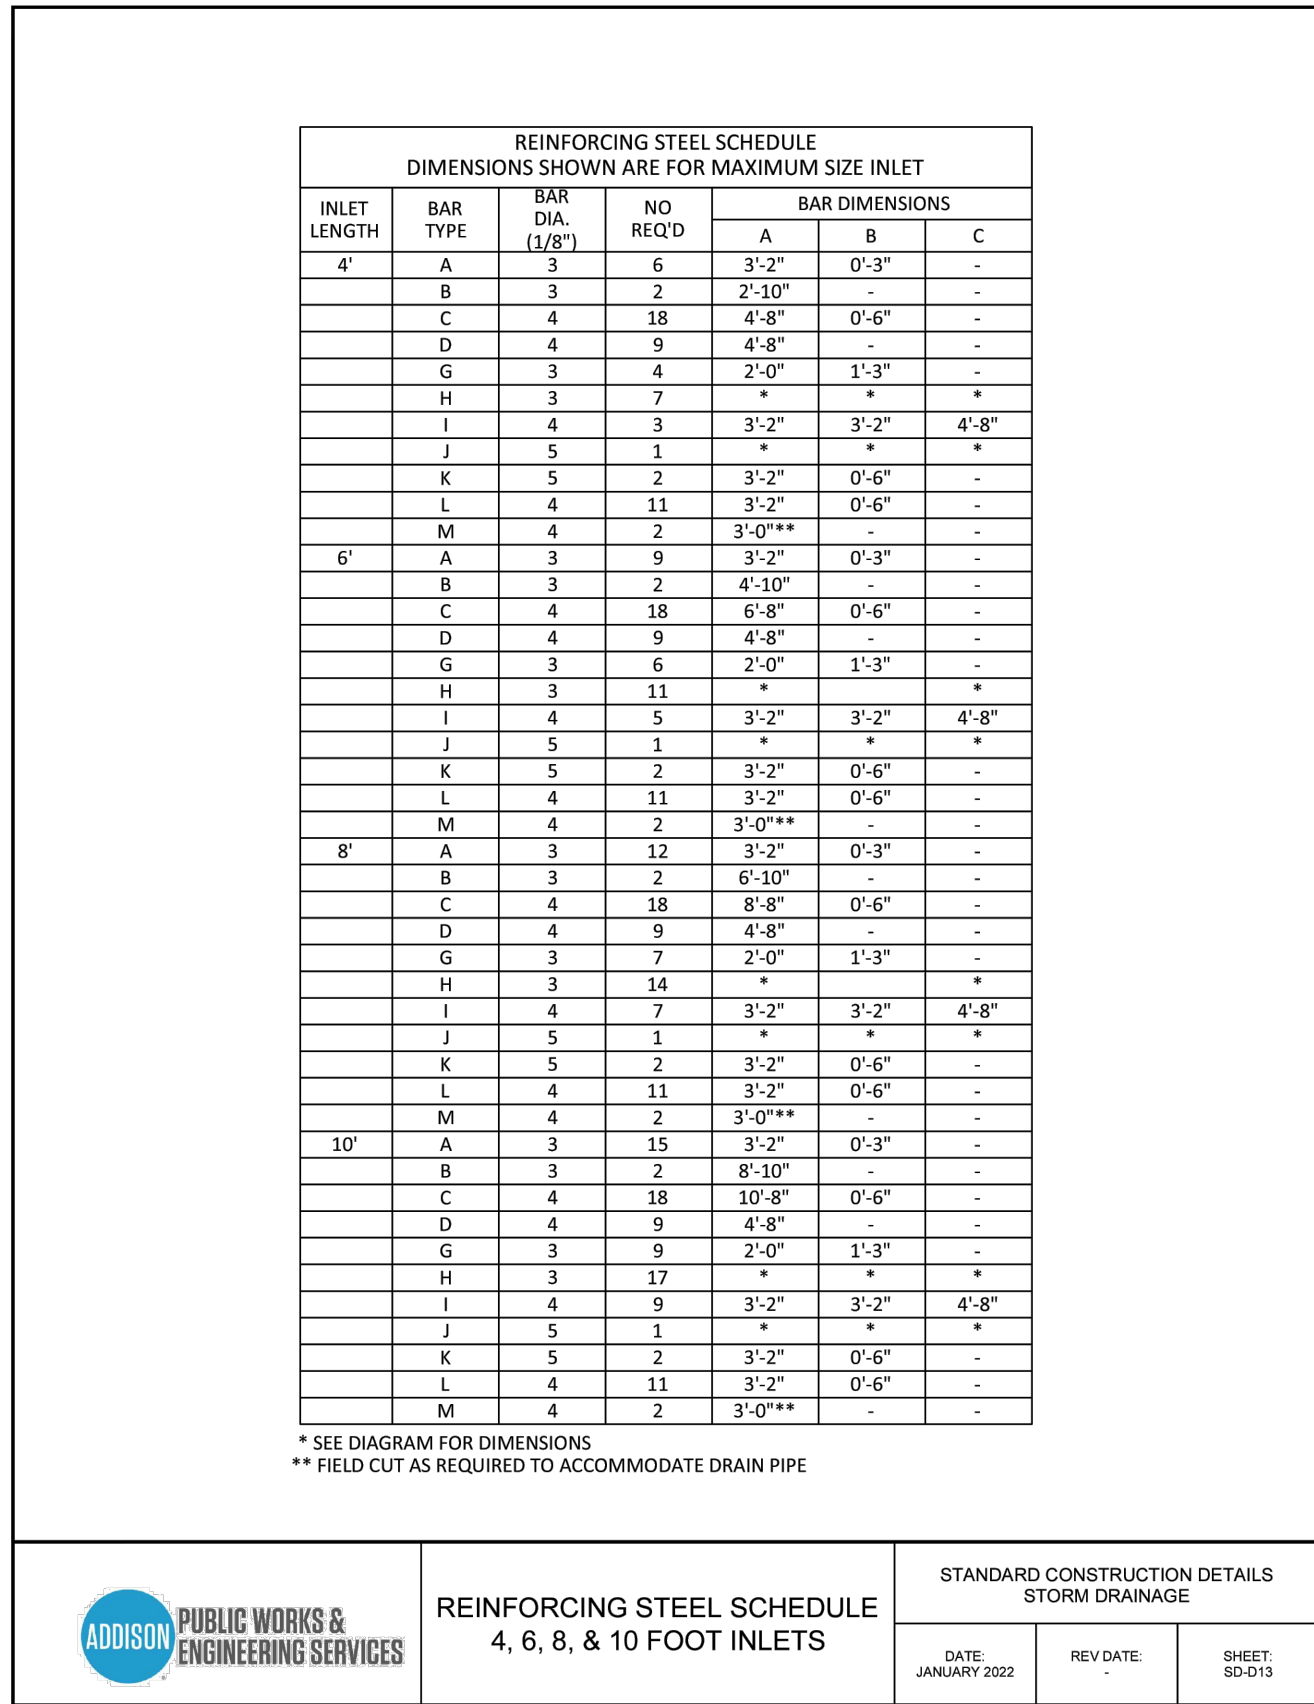 REINFORCING STEEL SCHEDULE
DIMENSIONS SHOWN ARE FOR MAXIMUM SIZE INLET
INLET LENGTH BAR TYPE BAR DIA. (1/8") NO REQ'D BAR DIMENSIONS
A B C
4' A 3 6 3'-2" 0'-3" -
B 3 2 2'-10" - -
C 4 18 4'-8" 0'-6" -
D 4 9 4'-8" - -
G 3 4 2'-0" 1'-3" -
H 3 7 * * *
I 4 3 3'-2" 3'-2" 4'-8"
J 5 1 * * *
K 5 2 3'-2" 0'-6" -
L 4 11 3'-2" 0'-6" -
M 4 2 3'-0"** - -
6' A 3 9 3'-2" 0'-3" -
B 3 2 4'-10" - -
C 4 18 6'-8" 0'-6" -
D 4 9 4'-8" - -
G 3 6 2'-0" 1'-3" -
H 3 11 * *
I 4 5 3'-2" 3'-2" 4'-8"
J 5 1 * * *
K 5 2 3'-2" 0'-6" -
L 4 11 3'-2" 0'-6" -
M 4 2 3'-0"** - -
8' A 3 12 3'-2" 0'-3" -
B 3 2 6'-10" - -
C 4 18 8'-8" 0'-6" -
D 4 9 4'-8" - -
G 3 7 2'-0" 1'-3" -
H 3 14 * *
I 4 7 3'-2" 3'-2" 4'-8"
J 5 1 * * *
K 5 2 3'-2" 0'-6" -
L 4 11 3'-2" 0'-6" -
M 4 2 3'-0"** - -
10' A 3 15 3'-2" 0'-3" -
B 3 2 8'-10" - -
C 4 18 10'-8" 0'-6" -
D 4 9 4'-8" - -
G 3 9 2'-0" 1'-3" -
H 3 17 * * *
I 4 9 3'-2" 3'-2" 4'-8"
J 5 1 * * *
K 5 2 3'-2" 0'-6" -
L 4 11 3'-2" 0'-6" -
M 4 2 3'-0"** - -
* SEE DIAGRAM FOR DIMENSIONS
** FIELD CUT AS REQUIRED TO ACCOMMODATE DRAIN PIPE
ADDISON
PUBLIC WORKS &
ENGINEERING SERVICES
REINFORCING STEEL SCHEDULE
4, 6, 8, & 10 FOOT INLETS
STANDARD CONSTRUCTION DETAILS
STORM DRAINAGE
DATE:
JANUARY 2022
REV DATE:
-
SHEET:
SD-D13